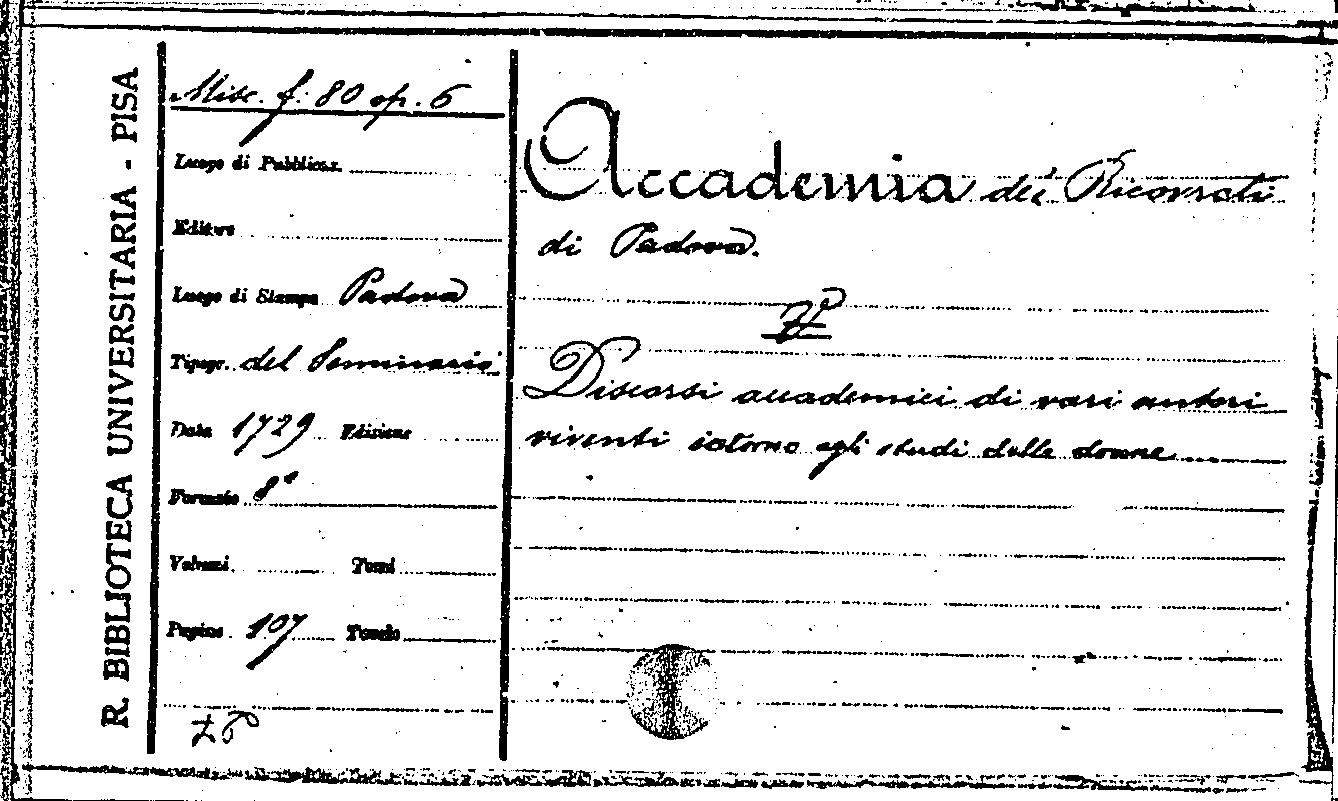 R. BIBLIOTECA UNIVERSITARIA - PISA
Misc. f. 80 op. 6
Luogo di Pubblicaz.
Editore
Luogo di Stampa Padova
Tipogr. del Seminario
Data 1729 Edizione
Formato 8°
Volumi Tomi
Pagine 107 Tavole
Accademia dei Ricovrati
di Padova.
Discorsi accademici di vari autori
viventi intorno agli studi delle donne